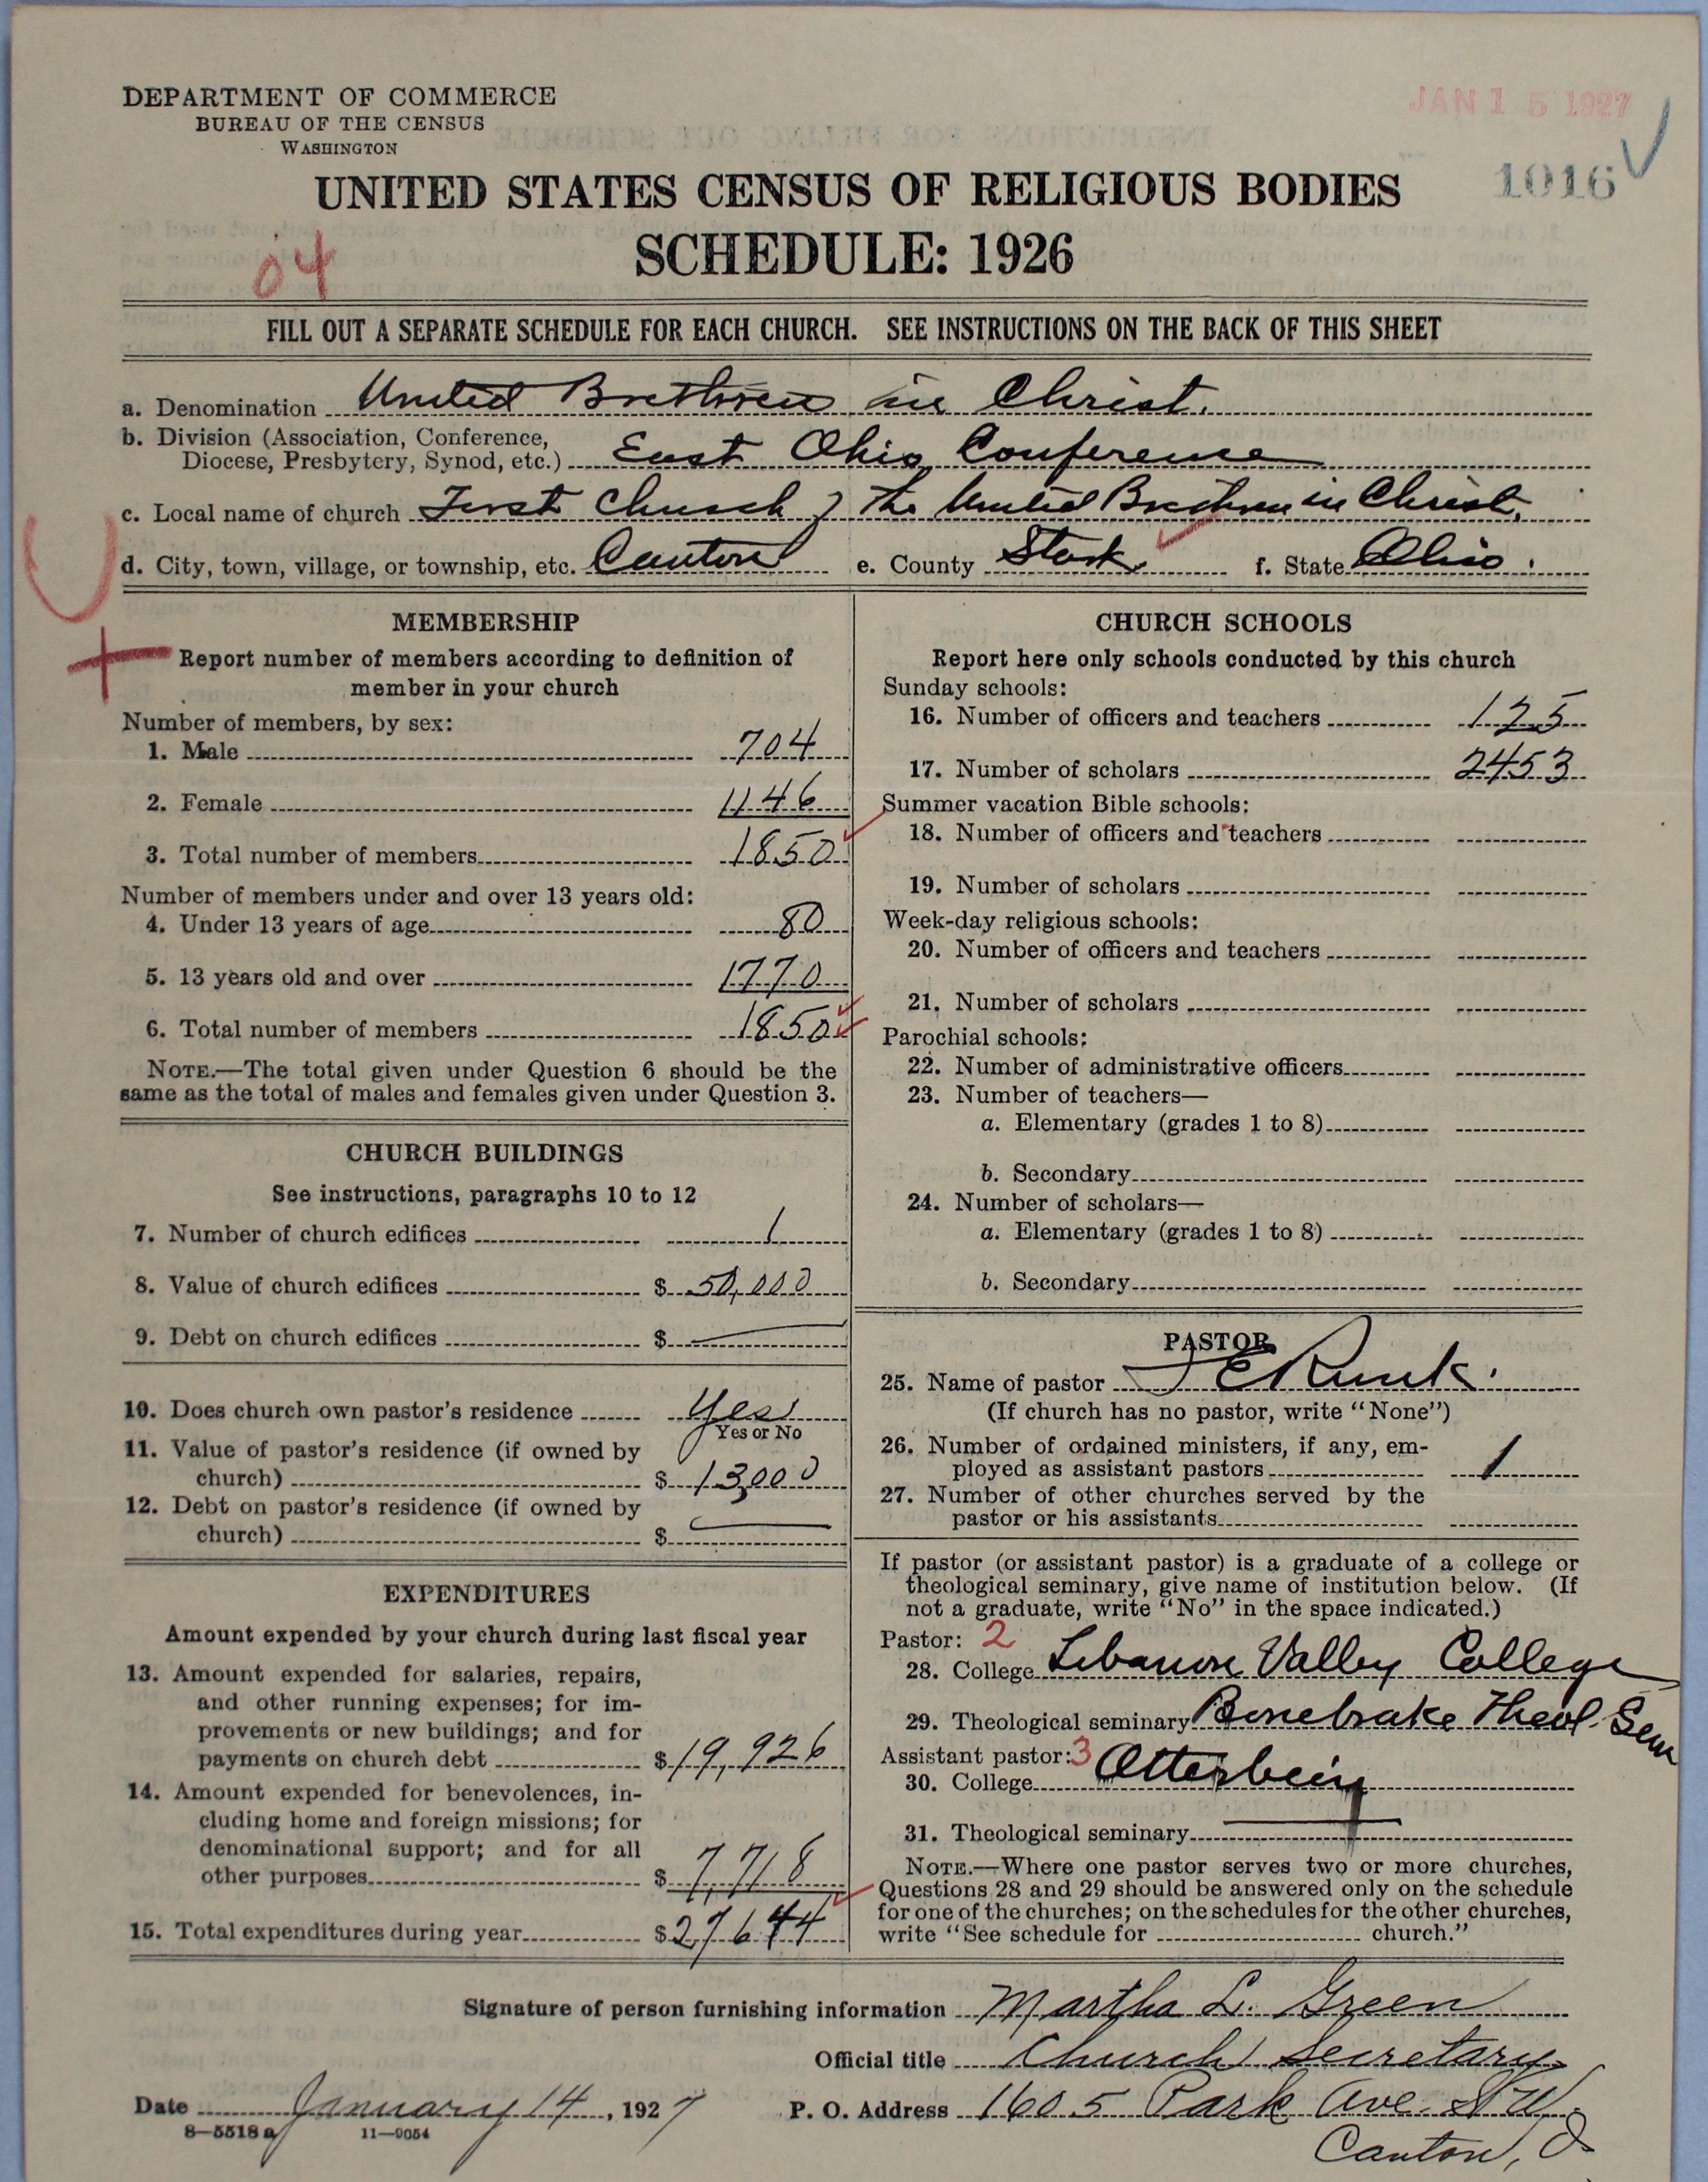 DEPARTMENT OF COMMERCE
BUREAU OF THE CENSUS
WASHINGTON
JAN 15 1927
1016
UNITED STATES CENSUS OF RELIGIOUS BODIES
SCHEDULE: 1926
04
FILL OUT A SEPARATE SCHEDULE FOR EACH CHURCH. SEE INSTRUCTIONS ON THE BACK OF THIS SHEET
a. Denomination United Brethren in Christ.
b. Division (Association, Conference,
Diocese, Presbytery, Synod, etc.) East Ohio Conference
c. Local name of church First Church of the United Brethren in Christ.
d. City, town, village, or township, etc. Canton e. County Stark f. State Ohio.
MEMBERSHIP
Report number of members according to definition of
member in your church
Number of members, by sex:
1. Male 704
2. Female 1146
3. Total number of members 1850
Number of members under and over 13 years old:
4. Under 13 years of age 80
5. 13 years old and over 1770
6. Total number of members 1850
NOTE.—The total given under Question 6 should be the
same as the total of males and females given under Question 3.
CHURCH BUILDINGS
See instructions, paragraphs 10 to 12
7. Number of church edifices 1
8. Value of church edifices $ 50,000
9. Debt on church edifices $
10. Does church own pastor's residence Yes
Yes or No
11. Value of pastor's residence (if owned by
church) $ 13,000
12. Debt on pastor's residence (if owned by
church) $
EXPENDITURES
Amount expended by your church during last fiscal year
13. Amount expended for salaries, repairs,
and other running expenses; for im-
provements or new buildings; and for
payments on church debt $ 19,926
14. Amount expended for benevolences, in-
cluding home and foreign missions; for
denominational support; and for all
other purposes $ 7,718
15. Total expenditures during year $ 27644
CHURCH SCHOOLS
Report here only schools conducted by this church
Sunday schools:
16. Number of officers and teachers 125
17. Number of scholars 2453
Summer vacation Bible schools:
18. Number of officers and teachers
19. Number of scholars
Week-day religious schools:
20. Number of officers and teachers
21. Number of scholars
Parochial schools:
22. Number of administrative officers
23. Number of teachers—
a. Elementary (grades 1 to 8)
b. Secondary
24. Number of scholars—
a. Elementary (grades 1 to 8)
b. Secondary
PASTOR
25. Name of pastor
(If church has no pastor, write "None")
26. Number of ordained ministers, if any, em-
ployed as assistant pastors 1
27. Number of other churches served by the
pastor or his assistants
If pastor (or assistant pastor) is a graduate of a college or
theological seminary, give name of institution below. (If
not a graduate, write "No" in the space indicated.)
Pastor: 2
28. College Lebanon Valley College
29. Theological seminary Bonebrake Theol. Sem
Assistant pastor: 3
30. College Otterbein
31. Theological seminary
NOTE.—Where one pastor serves two or more churches,
Questions 28 and 29 should be answered only on the schedule
for one of the churches; on the schedules for the other churches,
write "See schedule for church."
Signature of person furnishing information Martha L. Green
Official title Church Secretary
Date January 14, 1927 P. O. Address 1605 Park Ave. N.W.
8—5518a 11—9054
Canton, O